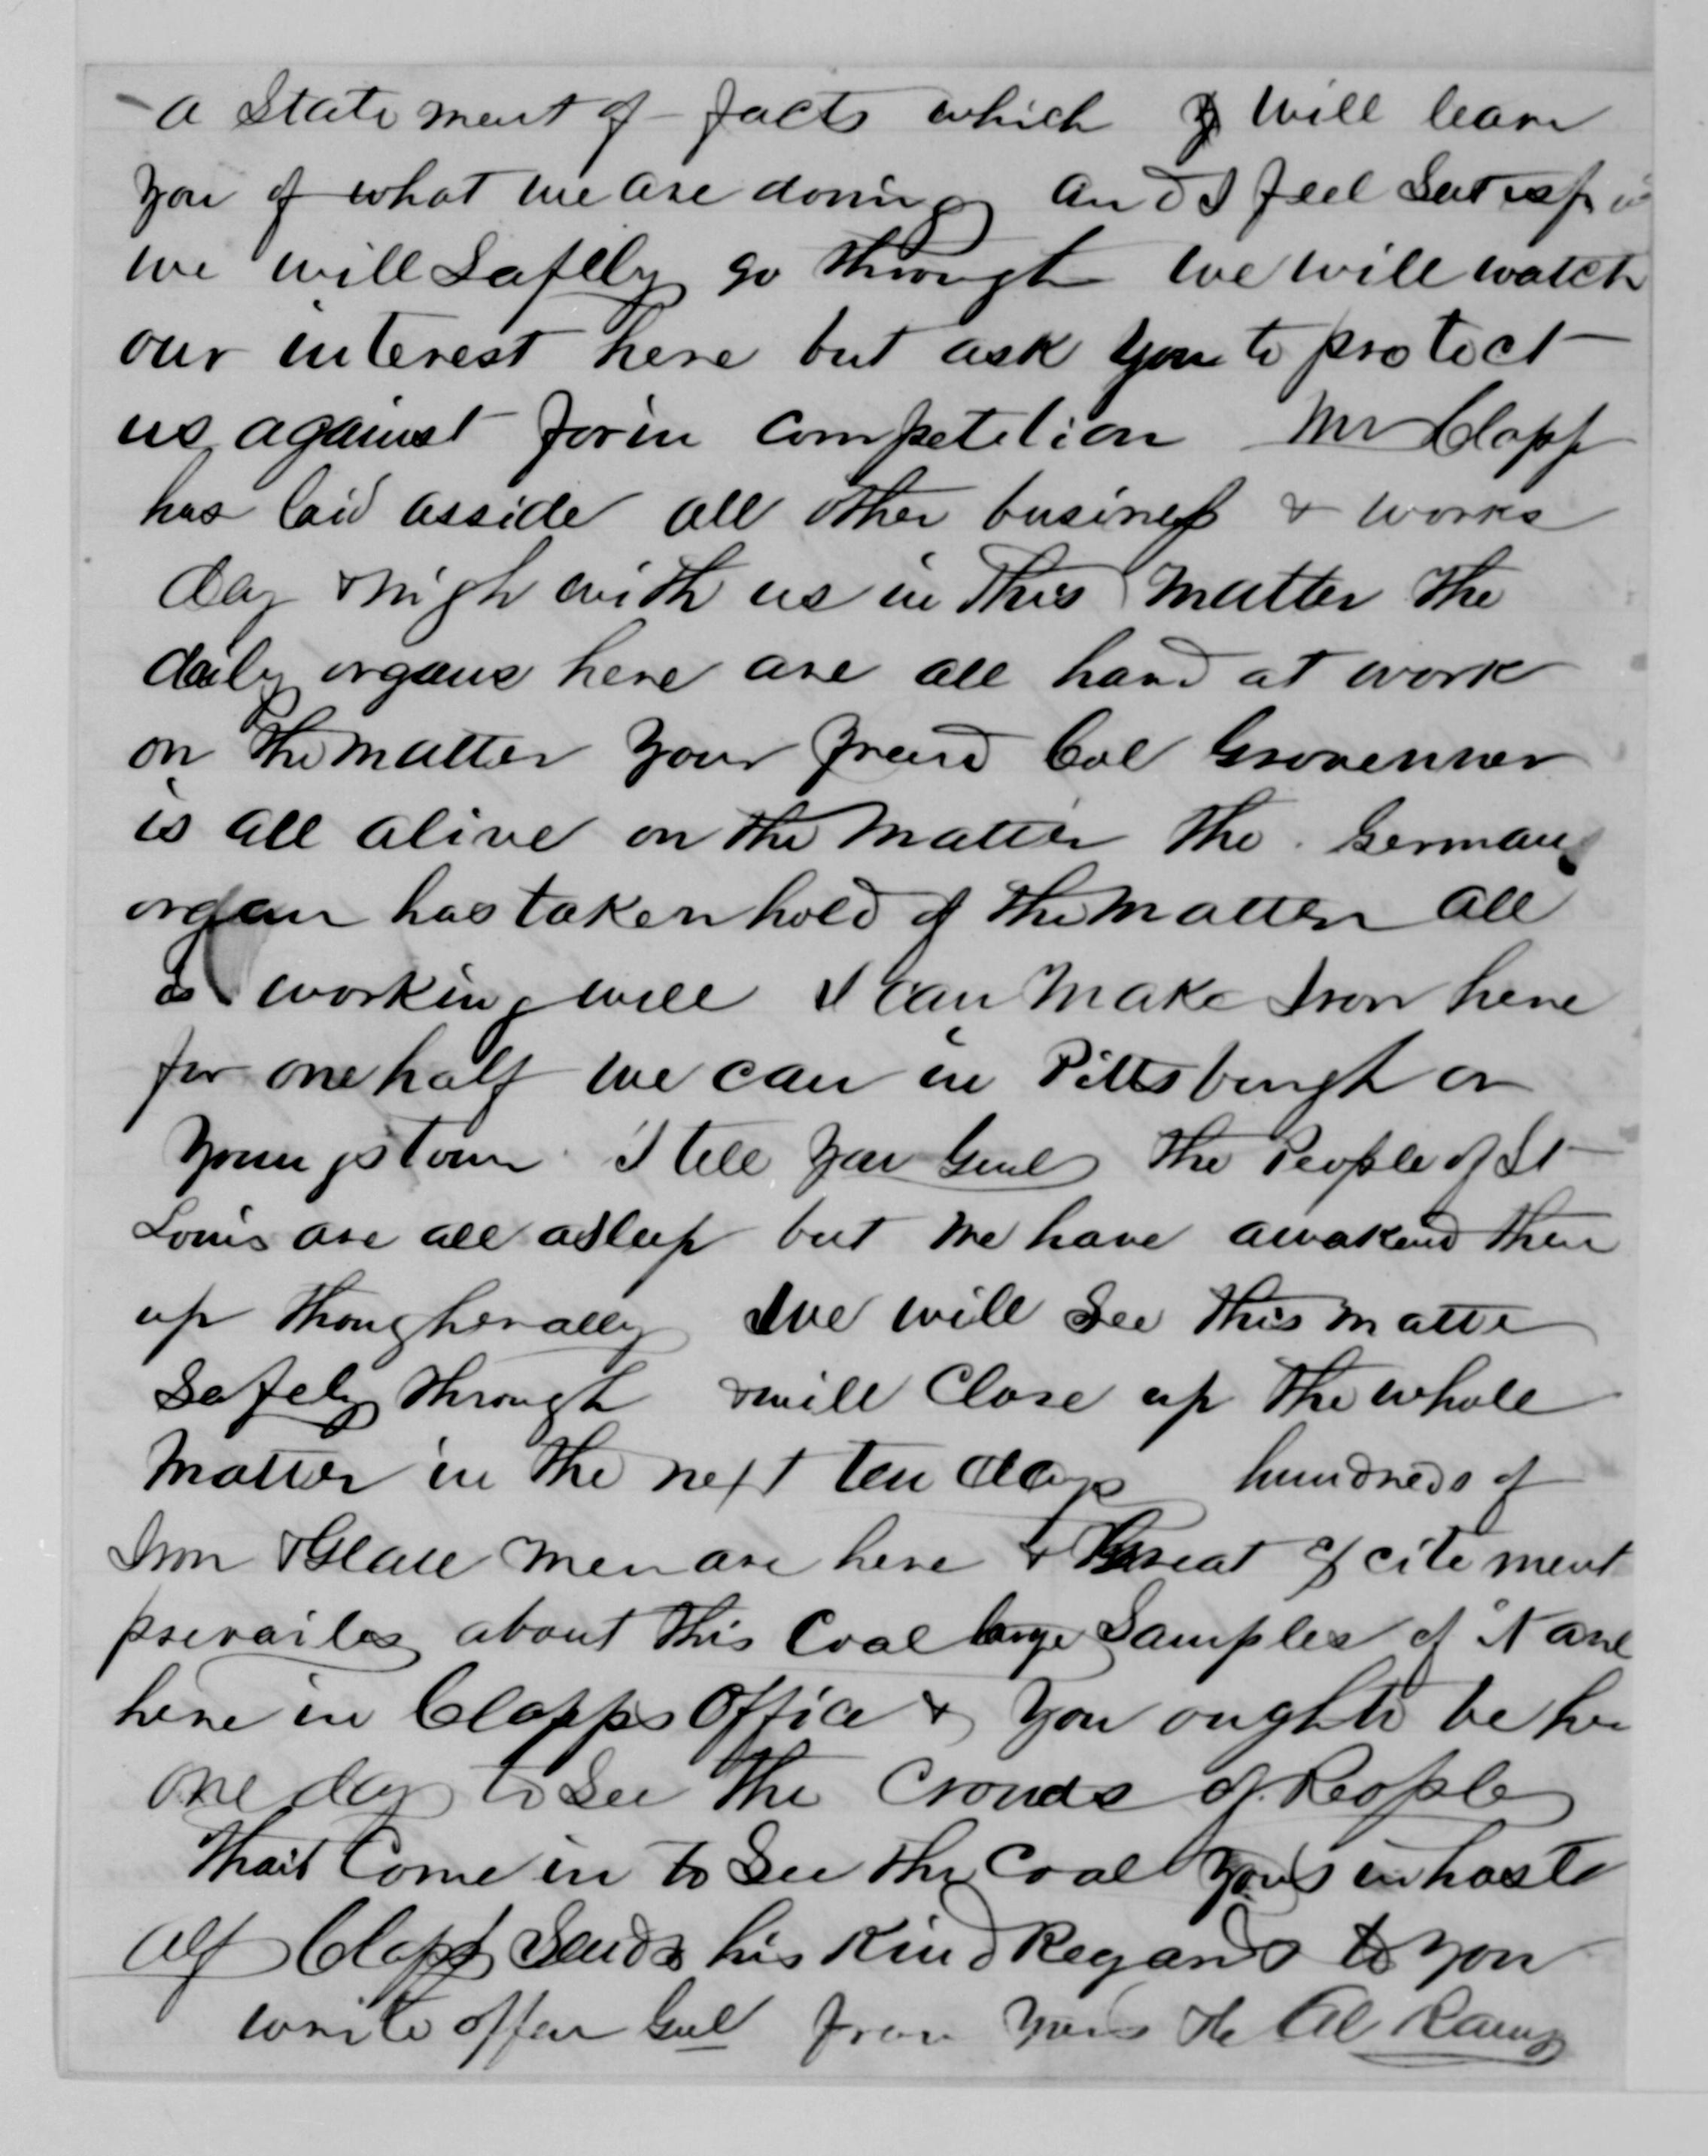 a State ment of facts which I will learn
you of what we are doning and I feel Satisfi
we will Saflly go through we will watch
our interest here but ask you to protect
us against forin Competition Mr Clapp
has laid asside all other business & works
day & nigh with us in This Matter The
daily organs here are all hard at work
on The matter your freind Col Grovenner
is all alive on The Matter The German
organ has taken hold of The Matter all
is working well I can Make Iron here
for one half we can in Pittsburgh or
Youngstown I tell you Genl The People of St
Louis are all asleep but we have awakend Them
up Thougherally We will See This Matter
Safely through & will Close up The whole
Matter in The next ten days hundreds of
Iron & Glass Men are here & Great Excite ment
prevailes about This Coal large Samples of it are
here in Clapps Office & you ought to be her
one day to See The Crouds of People
That Come in to See The Coal yours in haste
Alf Clapp Sends his Kind Regards to you
write offen Genl from yours